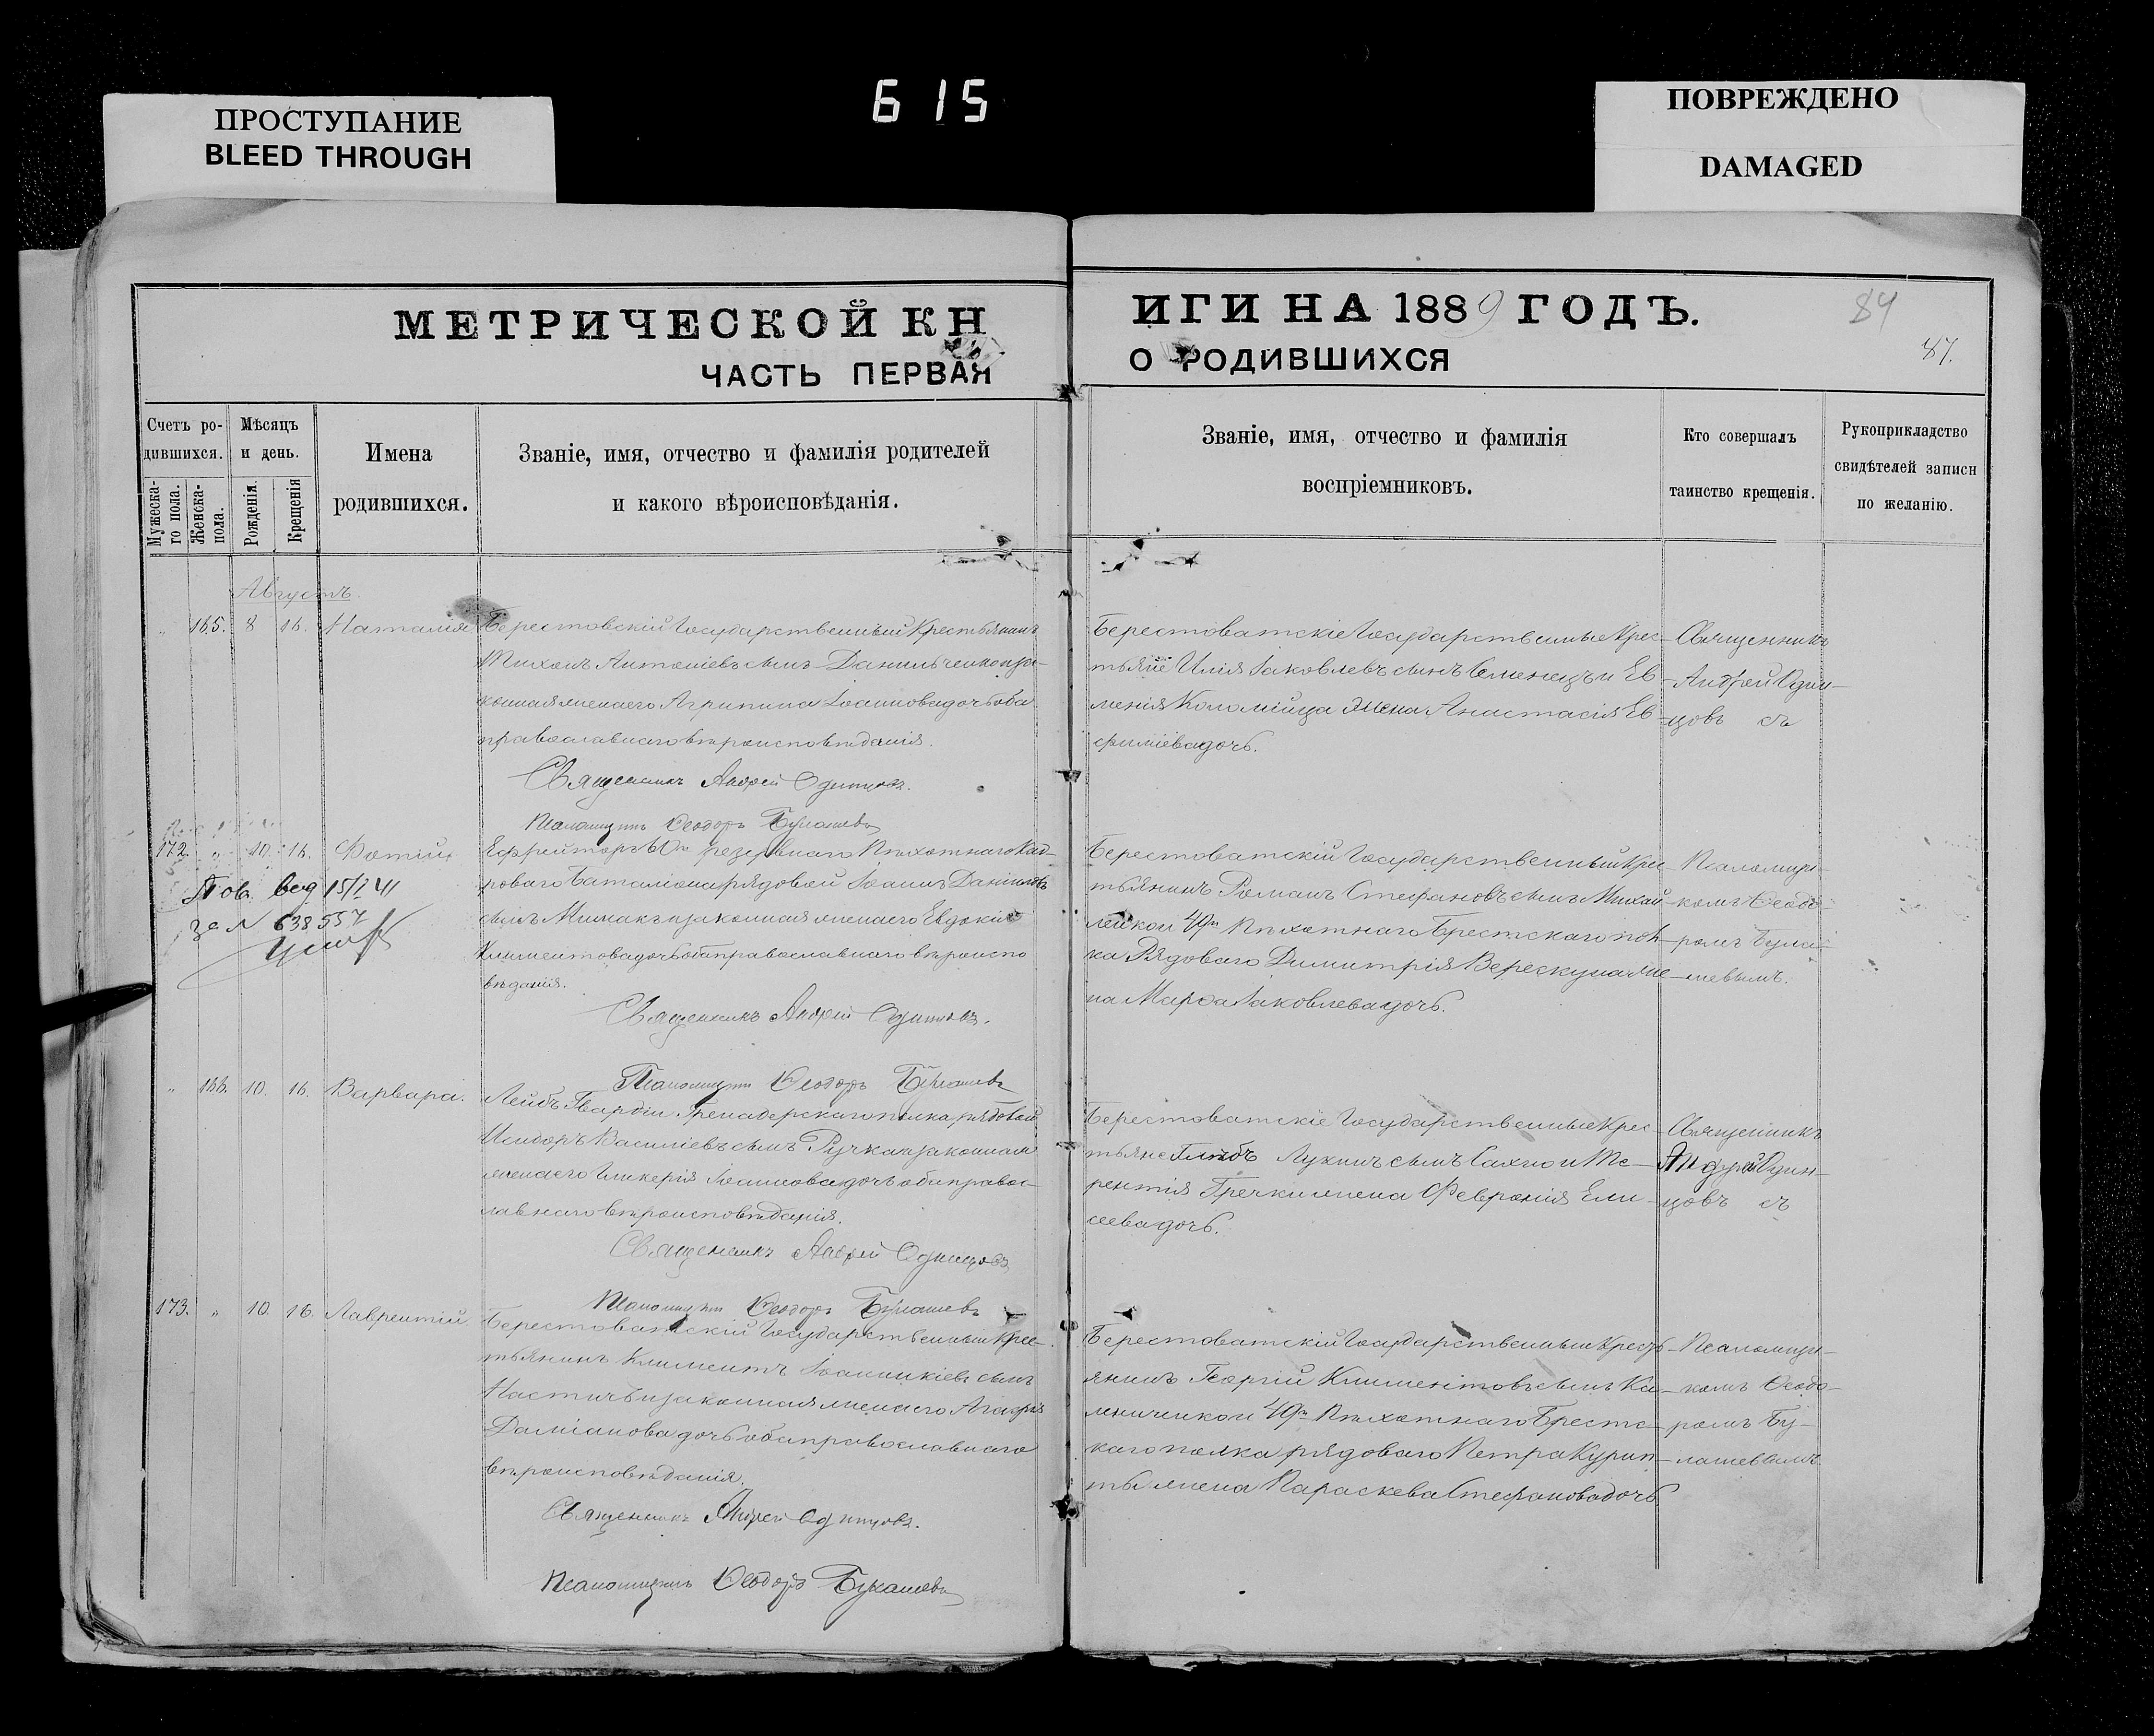 615
ПРОСТУПАНИЕ
BLEED THROUGH
ПОВРЕЖДЕНО
DAMAGED
МЕТРИЧЕСКОЙ КН
ЧАСТЬ ПЕРВАЯ
ИГИ НА 1889 ГОДЪ.
О РОДИВШИХСЯ
84
87.
Счетъ ро-
дившихся.
Мужеска-
го пола.
Женска-
пола.
Мѣсяцъ
и день.
Рожденія.
Крещенія
Имена
родившихся.
Званіе, имя, отчество и фамилія родителей
и какого вѣроисповѣданія.
Званіе, имя, отчество и фамилія
воспріемниковъ.
Кто совершалъ
таинство крещенія.
Рукоприкладство
свидѣтелей записи
по желанію.
Августъ.
„ 165. 8 16. Наталія
Берестовскій Государственный Крестьянинъ
Тихонъ Антоніевъ сынъ Данильченко и за-
конная жена его Агрипина Іоаннова дочь оба
православнаго вѣроисповѣданія.
Священникъ Андрей Одинцовъ.
Псаломщикъ Ѳеодоръ Булашевъ
Берестоватскіе Государственные Крес-
тьяне Илія Іаковлевъ сынъ Семенецъ и Ев-
менія Коломійца жена Анастасія Ев-
фиміева дочь.
Священникъ
Андрей Один-
цовъ съ
172 „ 10. 16. Фотій
Пов. выд 15/I 41
за № 638557
Ефрейторъ 60го резервнаго Пѣхотнаго Кад-
роваго Баталіона рядовой Іоаннъ Даніиловъ
сынъ Мимакъ и законная жена его Евдокія
Климентова дочь оба православнаго вѣроиспо
вѣданія.
Священникъ Андрей Одинцовъ.
Псаломщикъ Ѳеодоръ Булашевъ
Берестоватскій Государственный Крес-
тьянинъ Романъ Стефановъ сынъ Михай-
ленко и 49го Пѣхотнаго Брестскаго пол-
ка Рядоваго Димитрія Верескуна же-
на Марфа Іаковлева дочь.
Псаломщи-
комъ Ѳеодо-
ромъ Була-
шевымъ.
„ 166. 10. 16. Варвара.
Лейбъ Гвардіи Гренадерскаго полка рядовой
Исидоръ Василіевъ сынъ Ручка и законная
жена его Гликерія Іоаннова дочь оба правос-
лавнаго вѣроисповѣданія.
Священникъ Андрей Одинцовъ
Псаломщикъ Ѳеодоръ Булашевъ
Берестоватскіе Государственные Крес-
тьяне Глѣбъ Лукинъ сынъ Сахно и Те-
рентія Гречки жена Февронія Ели-
сеева дочь.
Священникъ
Андрей Один-
цовъ съ
173. „ 10. 16. Лаврентій
Берестоватскій Государственный Крес-
тьянинъ Климентъ Іоанникіевъ сынъ
Настичъ и законная жена его Агафія
Даміанова дочь оба православнаго
вѣроисповѣданія.
Священникъ Андрей Одинцовъ.
Псаломщикъ Ѳеодоръ Булашевъ
Берестоватскій Государственный Кресть-
янинъ Георгій Климентовъ сынъ Ка-
мениченко и 49го Пѣхотнаго Брестс-
каго полка рядоваго Петра Курип-
ты жена Параскева Стефанова дочь
Псаломщи-
комъ Ѳеодо-
ромъ Бу-
лашевымъ